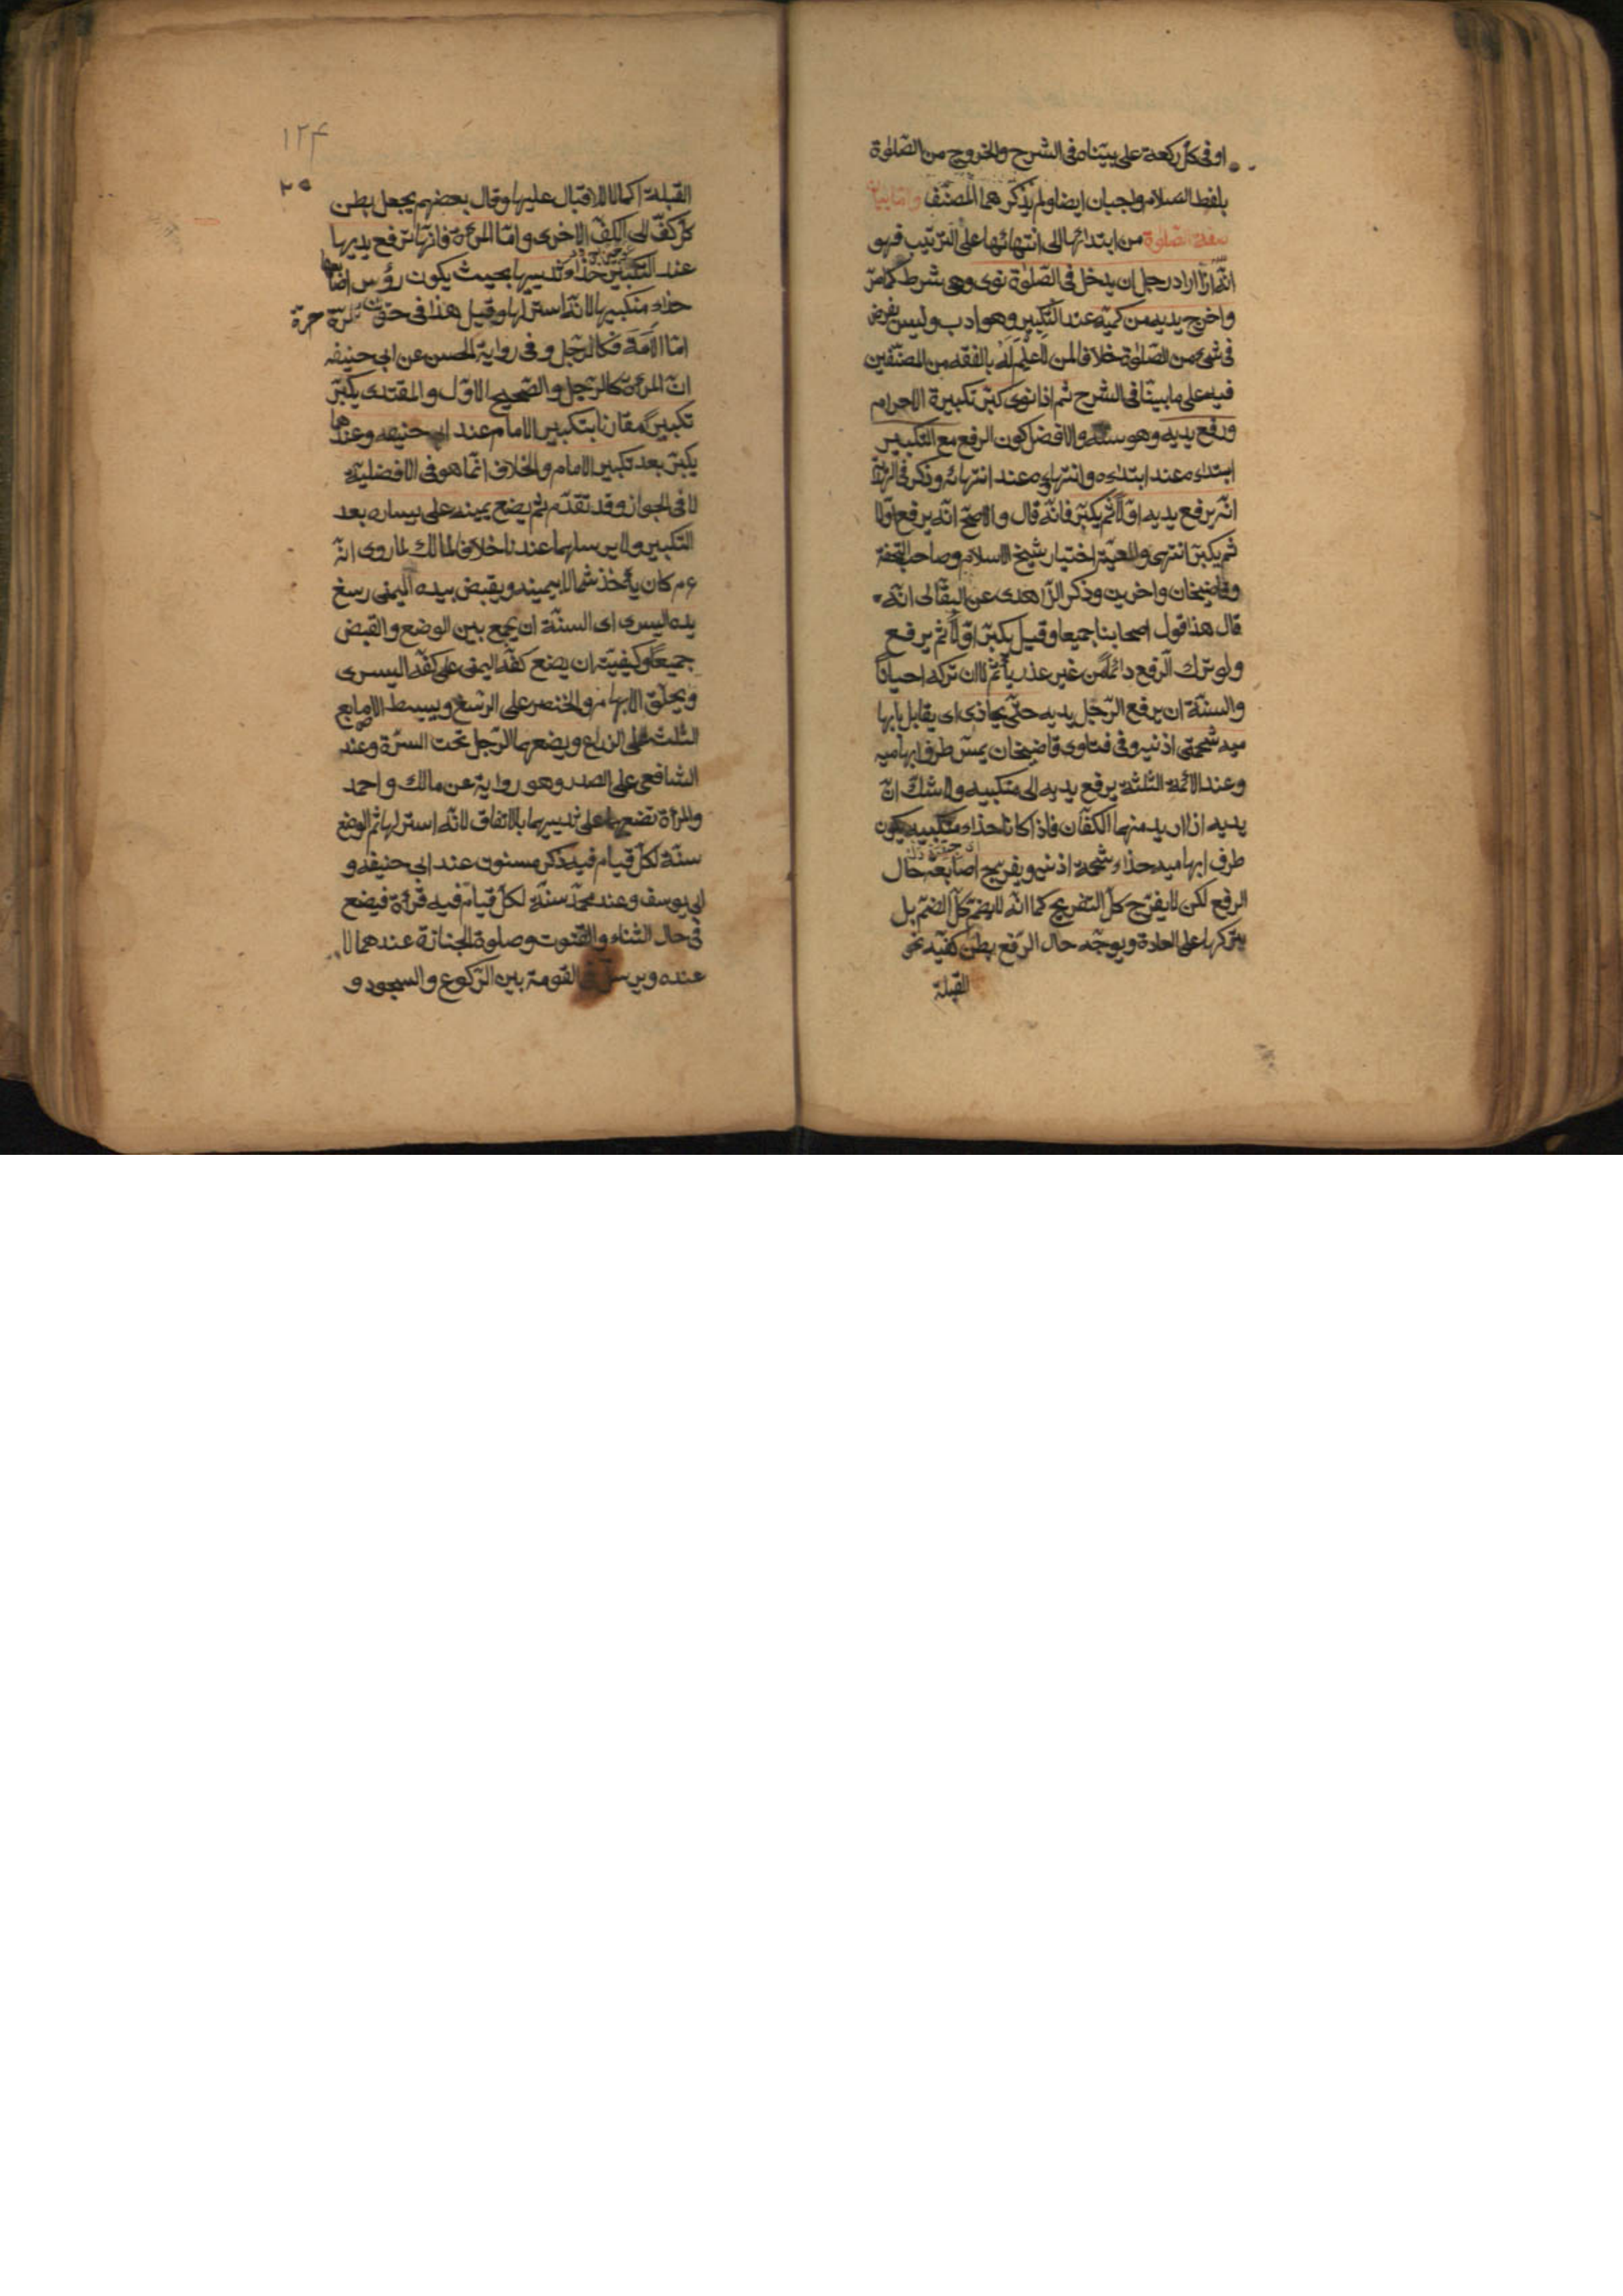 او فى كل ركعة على بيّناه فى الشرح والخروج من الصّلوة
بلفظ السلام واجبان ايضا ولم يذكرهما المصنّف وامّا بيان
صفة الصّلوة من ابتدائها الى انتهائها على الترتيب فهو
انّه اذا اراد رجل ان يدخل فى الصّلوة نوى وهى شرط كما مرّ
واخرج يديه من كمّيه عند التكبير وهو ادب وليس بفرض
فى شئ من الصّلوة خلافا لمن لا علم له بالفقه من المصنّفين
فيه على ما بيّنّا فى الشرح ثم اذا نوى كبّر تكبيرة الاحرام
ورفع يديه وهو سنّة والافضل كون الرفع مع التكبير
ابتداءه عند ابتداءه وانتهاءه عند انتهائه وذكر فى
انّه يرفع يديه اوّلاً ثم يكبّر فانّه قال والاصحّ انّه يرفع اوّلا
ثم يكبّر انتهى والمعيّة اختيار شيخ الاسلام وصاحب التحفة
وقاضيخان واخرين وذكر الزّاهدى عن البقّالى انّه
قال هذا قول اصحابنا جميعا وقيل يكبّر اوّلاً ثم يرفع
ولو ترك الرفع دائماً من غير عذر يأثم لا ان تركه احيانًا
والسنّة ان يرفع الرّجل يديه حتّى يحاذى اى يقابل بابها
ميه شحمتى اذنيه وفى فتاوى قاضيخان يمسّ طرف ابهاميه
وعند الائمّة الثّلثة يرفع يديه الى منكبيه ولا شكّ انّ
يديه اذا اريد منهما الكفّان فاذا كانا حذاء منكبيه يكون
طرف ابهاميه حذاء شحمة اذنيه ويفرّج اصابعه حال
الرفع لكن لا يفرّج كلّ التفريج كما انّه لا يضمّ كلّ الضمّ بل
يتركها على العادة ويوجّه حال الرّفع بطن كفّيه نحو
القبلة
١٢٤
القبلة اكمالا للاقبال عليها وقال بعضهم يجعل بطن
كل كفّ الى الكفّ الاخرى وامّا المرءة فانّها ترفع يديها
عند التكبير حذاء ثدييها بحيث يكون رؤس اصابعها
حذاء منكبيها لانّه استر لها وقيل هذا فى حقّ المرة حرة
امّا الأَمَة فكالرّجل وفى رواية الحسن عن ابى حنيفه
انّ المرءة كالرّجل والصّحيح الاوّل والمقتدى يكبّر
تكبيراً مقارنا بتكبير الامام عند ابى حنيفه وعندهما
يكبّر بعد تكبير الامام والخلاف انّما هو فى الافضليّة
لا فى الجواز وقد تقدّم ثم يضع يمينه على يساره بعد
التكبير ولا يرسلهما عندنا خلافا لمالك لما روى انّه
ع م كان يأخذ شماله بيمينه ويقبض بيده اليمنى رسغ
يده اليسرى اى السنّة ان يجمع بين الوضع والقبض
جميعًا وكيفيّته ان يضع كفّه اليمنى على كفّه اليسرى
ويحلّق الابهام والخنصر على الرّسغ ويبسط الاصابع
الثلث على الزراع ويضعهما الرّجل تحت السرّة وعند
الشافعى على الصدر وهو رواية عن مالك واحمد
والمرأة تضعهما على ثدييها بالاتفاق لانّه استر لها ثم الوضع
سنّة لكلّ قيام فيه ذكر مسنون عند ابى حنيفه و
ابى يوسف وعند محمّد سنّة لكلّ قيام فيه قرءة فيضع
فى حال الثناء والقنوت وصلوة الجنازة عندهما لا
عنده ويرسل فى القومة بين الرّكوع والسجود و